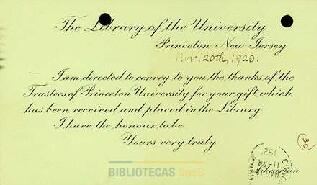 The Library of the University
Princeton New Jersey
Nov. 20th, 1920.
I am directed to convey to you the thanks of the
Trustees of Princeton University for your gift which
has been received and placed in the Library
I have the honour to be
Yours very truly
BIBLIOTECAS